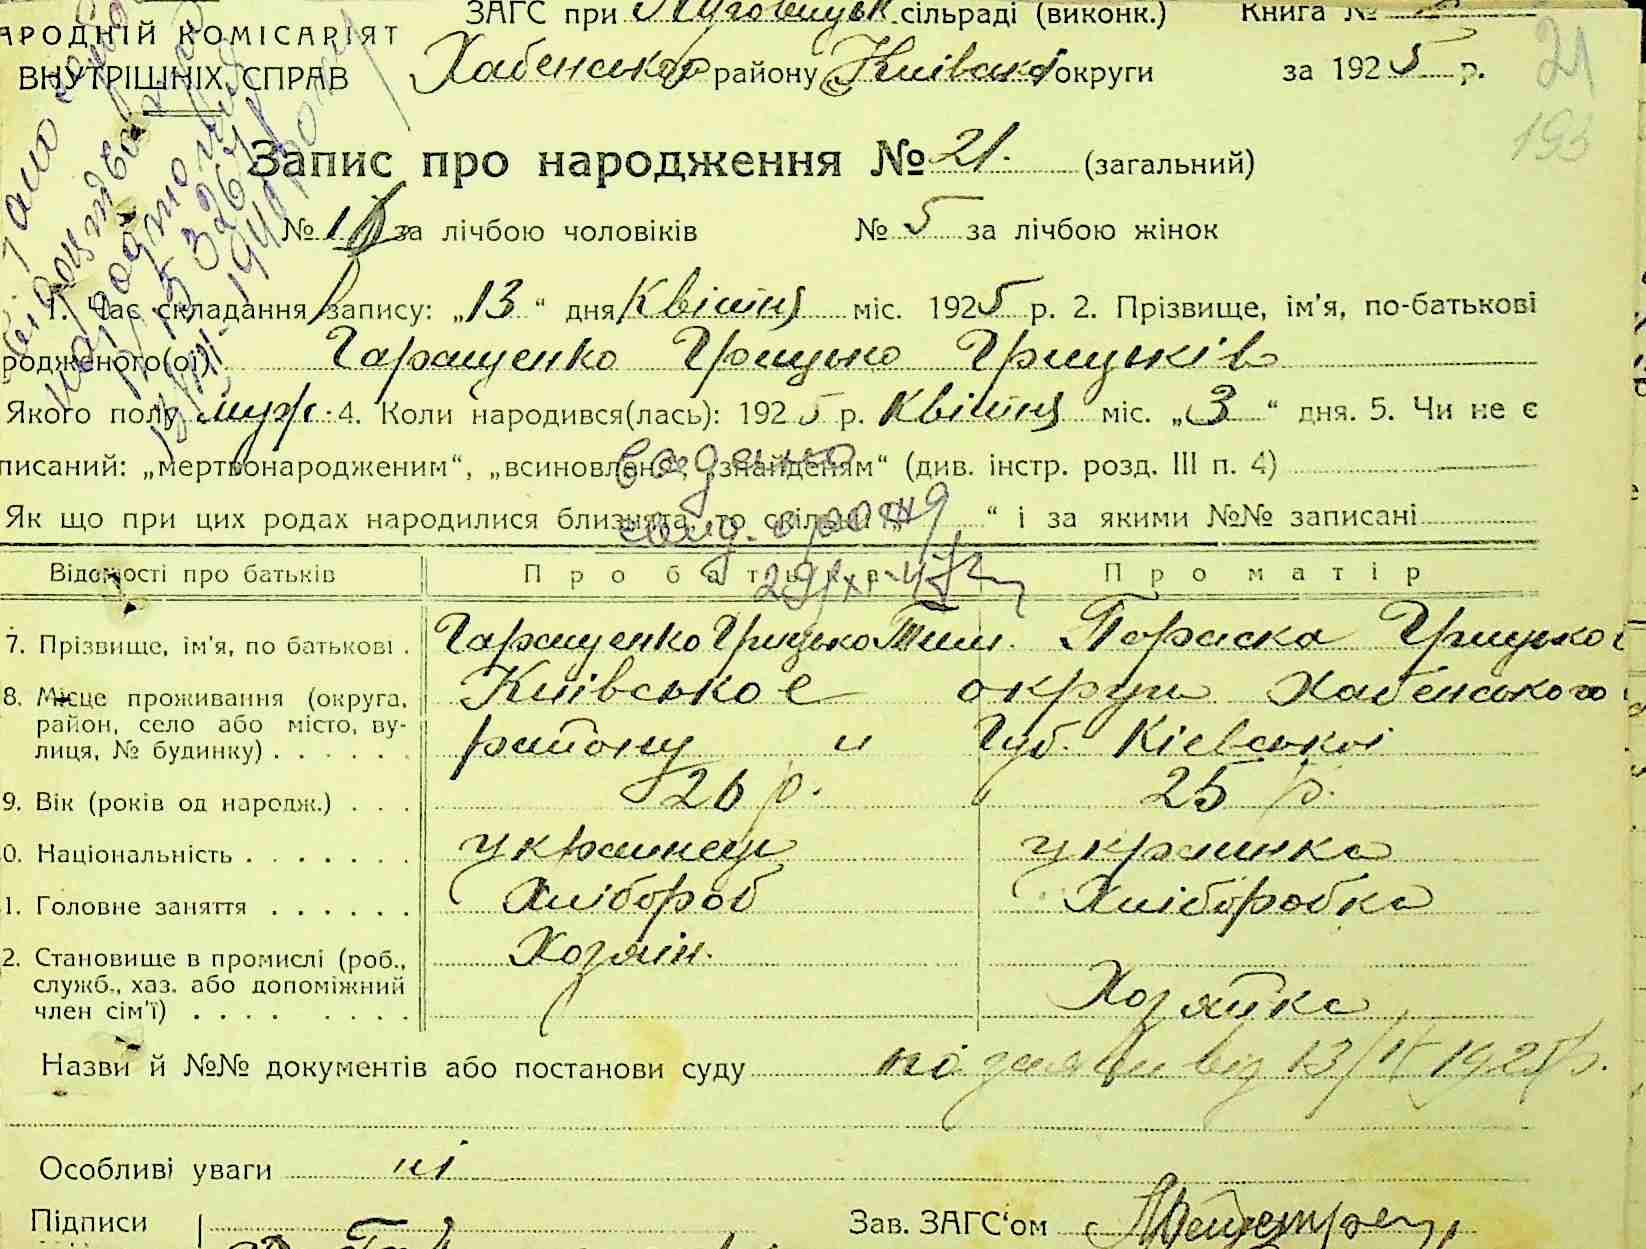 ЗАГС при сільраді (виконк.) Книга №
АРОДНІЙ КОМІСАРІЯТ
ВНУТРІШНІХ СПРАВ
Хабенського району Київської округи за 1925 р.
21
193
Запис про народження № 21. (загальний)
№ 16 за лічбою чоловіків № 5 за лічбою жінок
1. Час складання запису: „13“ дня Квітня міс. 1925 р. 2. Прізвище, ім'я, по-батькові
родженого(ої) Гаращенко Грицько Грицьків
Якого полу муж. 4. Коли народився(лась): 1925 р. Квітня міс. „3“ дня. 5. Чи не є
писаний: „мертвонародженим“, „всиновлен „знайденям“ (див. інстр. розд. III п. 4)
Як що при цих родах народилися близнята, то скільки „ “ і за якими №№ записані
Відомості про батьків Про батька Про матір
7. Прізвище, ім'я, по батькові . Гаращенко Грицько Тим. Параска
8. Місце проживання (округа, район, село або місто, вулиця, № будинку) . . . . . . Київськоє округи Хабенського
району и Губ. Кіевської
9. Вік (років од народж.) . . . 26 р. 25 р.
0. Національність . . . . . . . украинец украинка
1. Головне заняття . . . . . . Хлібороб Хліборобка
2. Становище в промислі (роб., служб., хаз. або допоміжний член сім'ї) . . . . . . . . Хозяін. Хозяйка
Назви й №№ документів або постанови суду по заяви від 13/IV 1925 р.
Особливі уваги ні
Підписи Зав. ЗАГС'ом